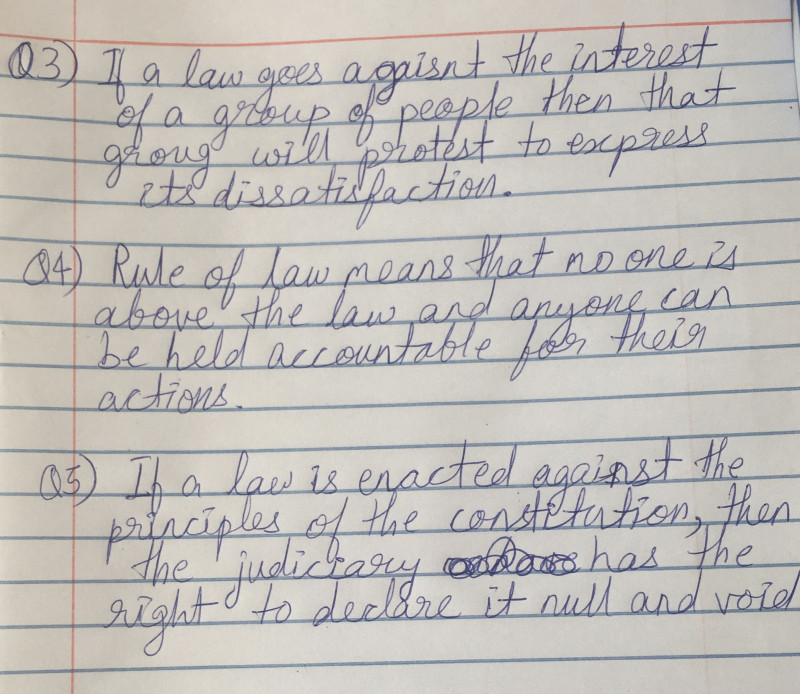 Q3) If a law goes agaisnt the interest
of a group of people then that
groug will protest to express
its dissatisfaction.
Q4) Rule of law means that no one is
above the law and anyone can
be held accountable for their
actions.
Q5) If a law is enacted against the
principles of the constitution, then
the judiciary has the
right to declare it null and void